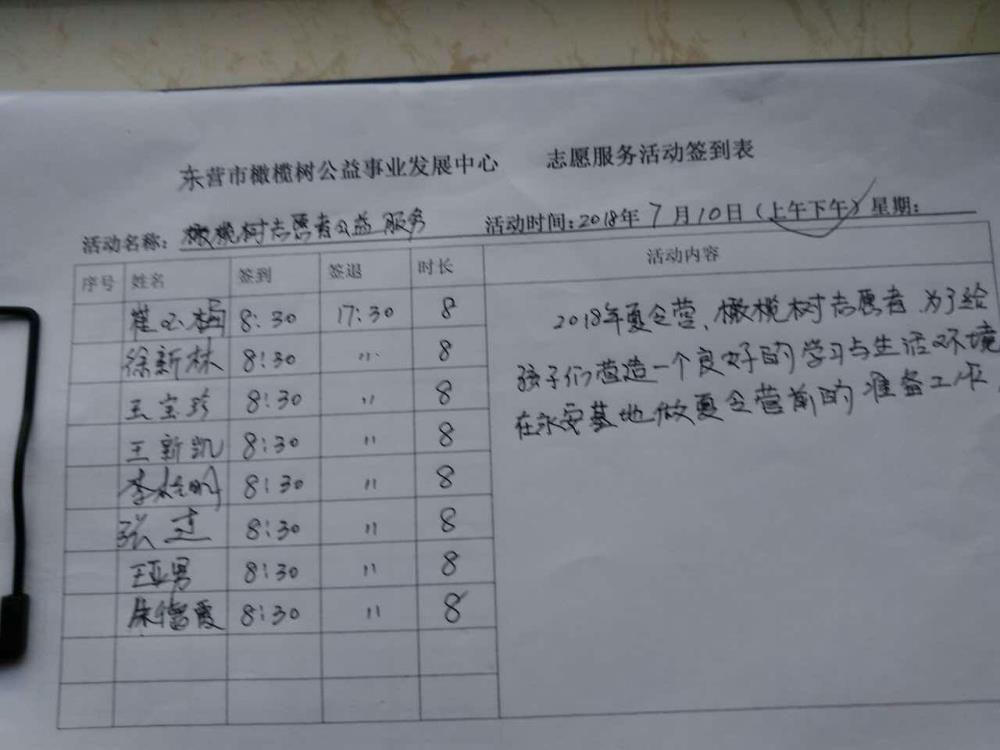 东营市橄榄树公益事业发展中心 志愿服务活动签到表
活动名称：橄榄树志愿者公益服务 活动时间：2018年7月10日（上午下午）星期：
序号 姓名 签到 签退 时长 活动内容
8:30 17:30 8
徐新林 8:30 〃 8
王宝珍 8:30 〃 8
王新凯 8:30 〃 8
李 8:30 〃 8
张 8:30 〃 8
王亚男 8:30 〃 8
霞 8:30 〃 8
2018年夏令营、橄榄树志愿者、为了给
孩子们营造一个良好的学习与生活环境
在永安基地做夏令营前的准备工作